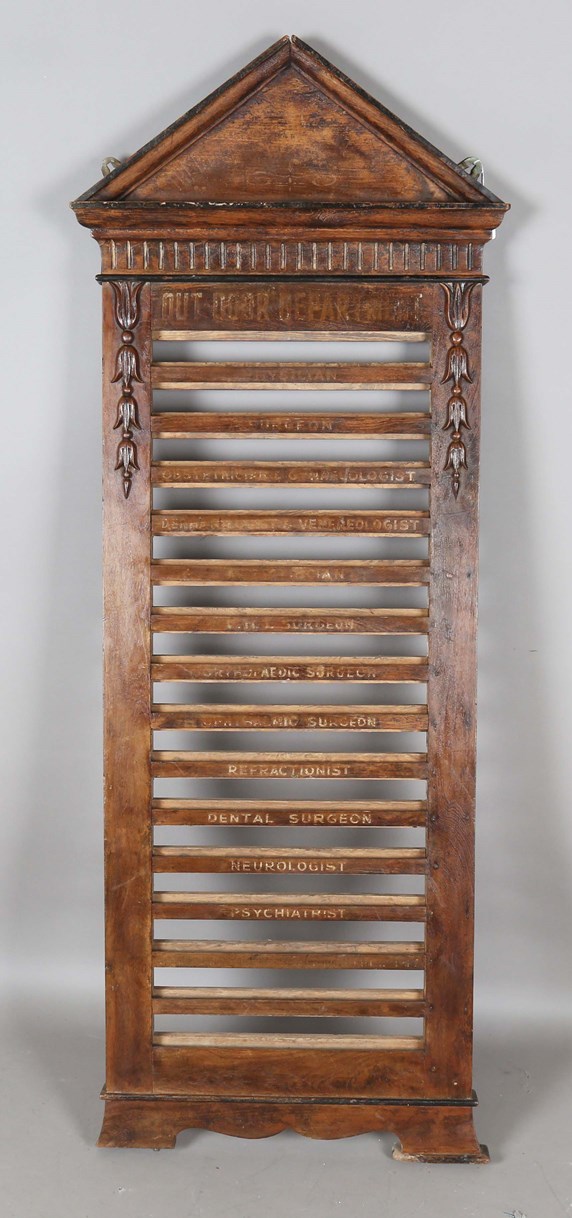 OUT DOOR DEPARTMENT
SURGEON
OBSTETRICIAN & GYNAECOLOGIST
DERMATOLOGIST & VENEREOLOGIST
E.N.T. SURGEON
ORTHOPAEDIC SURGEON
OPHTHALMIC SURGEON
REFRACTIONIST
DENTAL SURGEON
NEUROLOGIST
PSYCHIATRIST